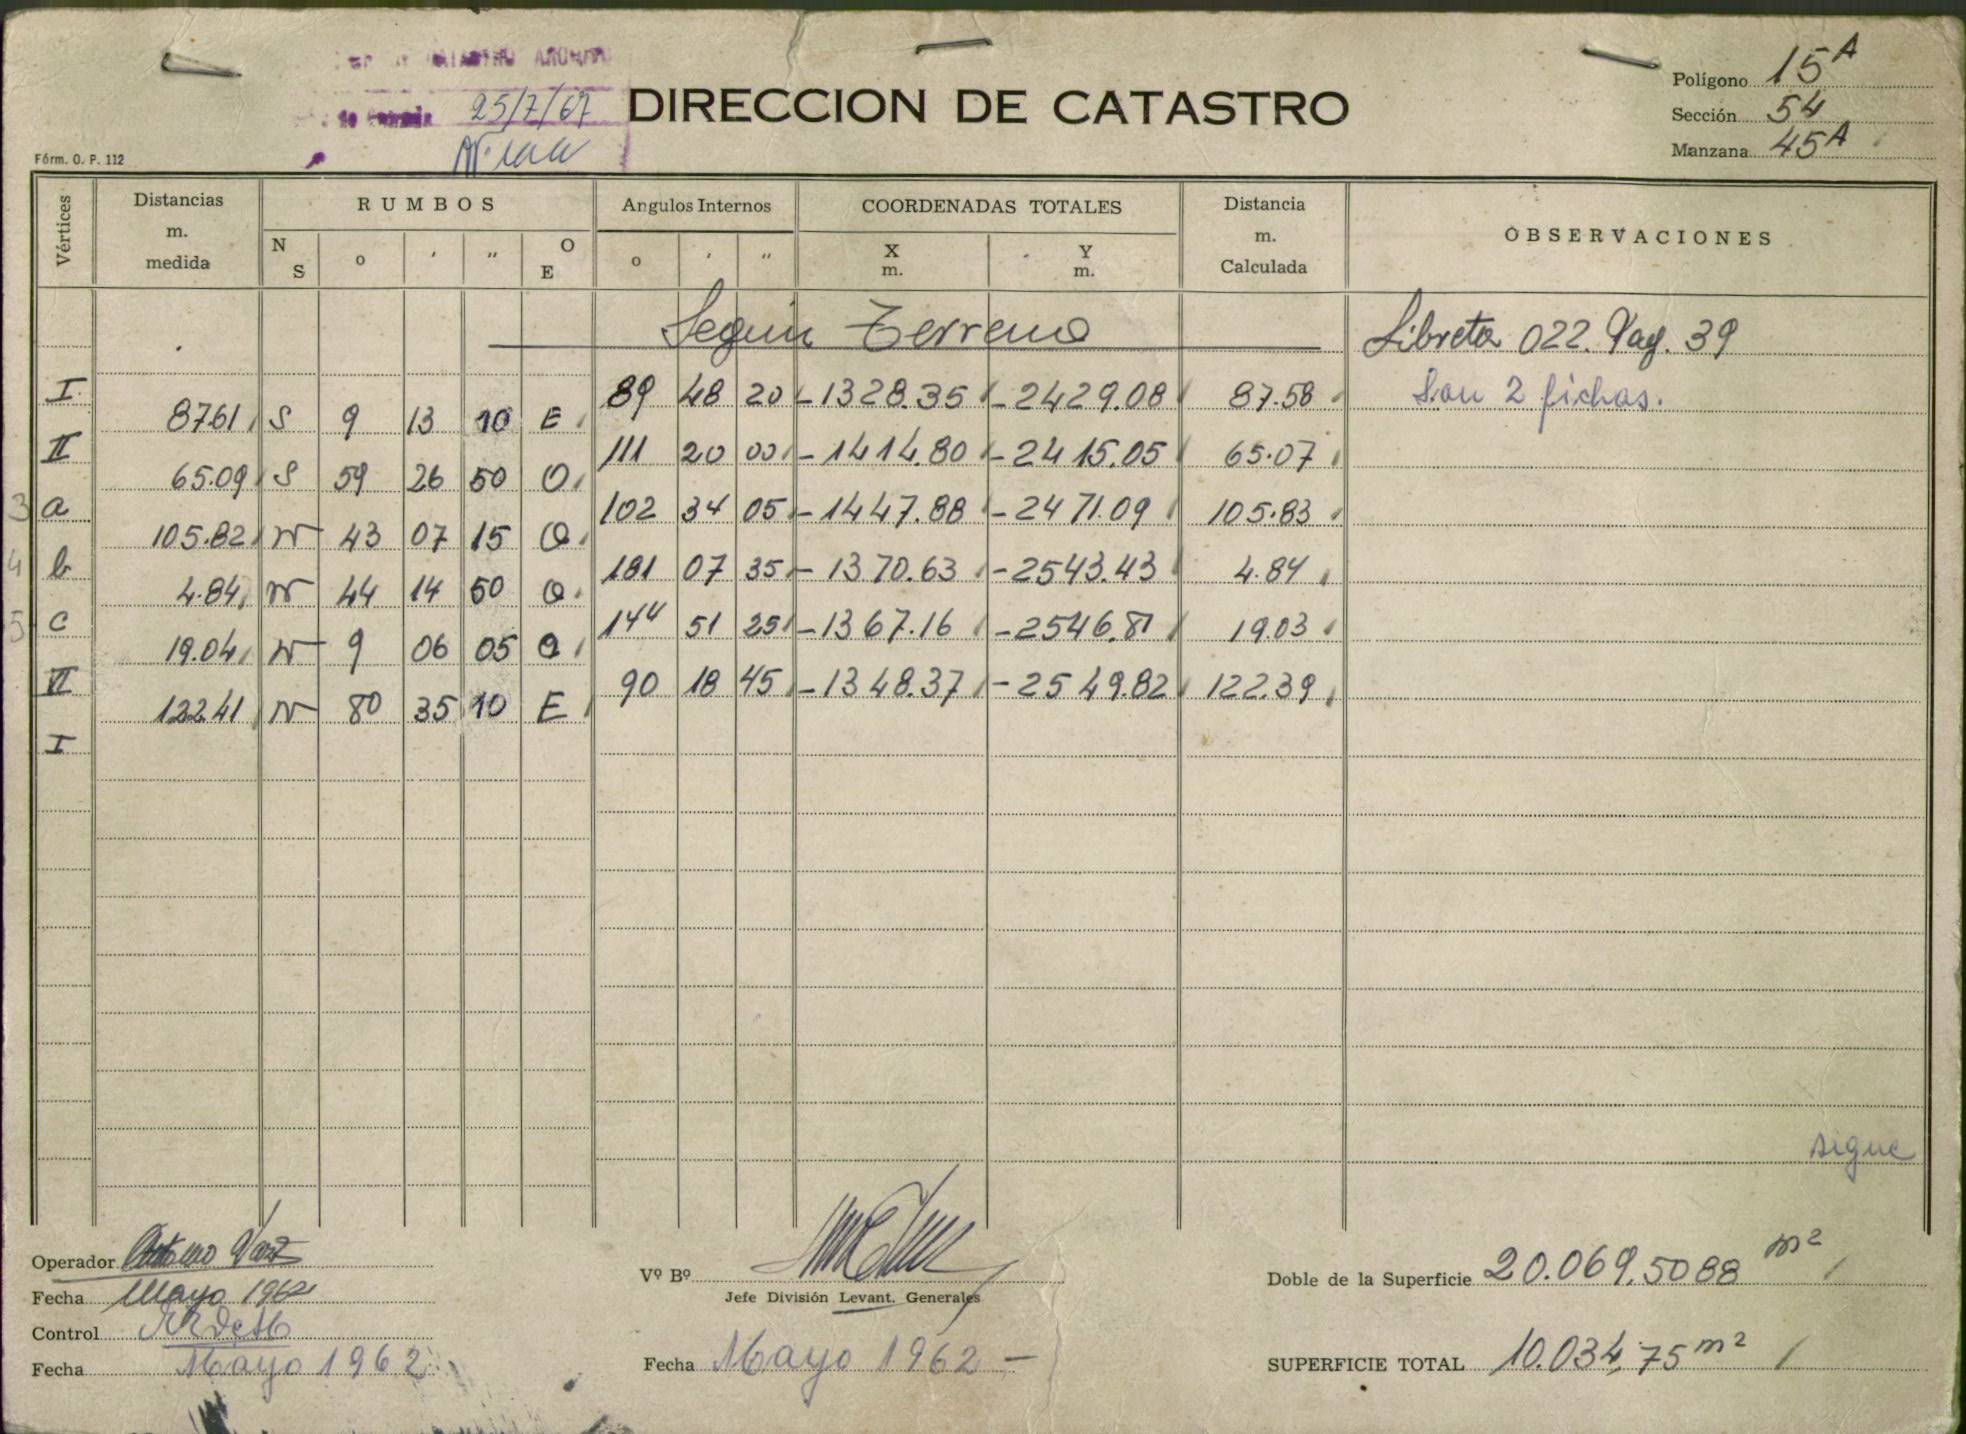 CATASTRO
25/7/67
DIRECCION DE CATASTRO
Polígono 15A
Sección 54
Manzana 45A
Fórm. O. P. 112
Vértices
Distancias m. medida
RUMBOS
N S o ′ ″ O E
Angulos Internos
o ′ ″
COORDENADAS TOTALES
X m. Y m.
Distancia m. Calculada
OBSERVACIONES
Segun Terreno
Libreta 022. Pag. 39
I 89 48 20 -1328.35 -2429.08 87.58 Son 2 fichas.
87.61 S 9 13 10 E
II 111 20 00 -1414.80 -2415.05 65.07
65.09 S 59 26 50 O
3 a 102 34 05 -1447.88 -2471.09 105.83
105.82 N 43 07 15 O
4 b 181 07 35 -1370.63 -2543.43 4.84
4.84 N 44 14 50 O
5 c 144 51 25 -1367.16 -2546.81 19.03
19.04 N 9 06 05 O
VI 90 18 45 -1348.37 -2549.82 122.39
122.41 N 80 35 10 E
I
sigue
Operador
Fecha Mayo 1962
Control
Fecha Mayo 1962
Vº Bº
Jefe División Levant. Generales
Fecha Mayo 1962 -
Doble de la Superficie 20.069,5088 m2
SUPERFICIE TOTAL 10.034,75 m2